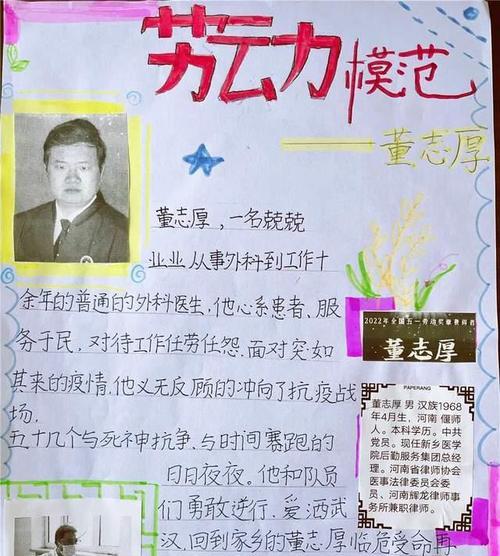 劳动力模范
——董志厚
董志厚，一名兢兢
业业从事外科到工作十
余年的普通的外科医生，他心系患者，服
务于民，对待工作任劳任怨，面对突如
其来的疫情，他义无反顾的冲向了抗疫战
场。
五十几个与死神抗争、与时间赛跑的
日日夜夜。他和队员
们勇敢逆行，爱洒武
汉，回到家乡的董志厚临危受命再
2022年全国五一劳动奖章获得者
董志厚
PAPERANG
董志厚 男 汉族1968
年4月生，河南 偃师
人。本科学历。中共
党员。现任新乡医学
院后勤服务集团总经
理。河南省律师协会
医事法律委员会委
员、河南辉龙律师事
务所兼职律师。